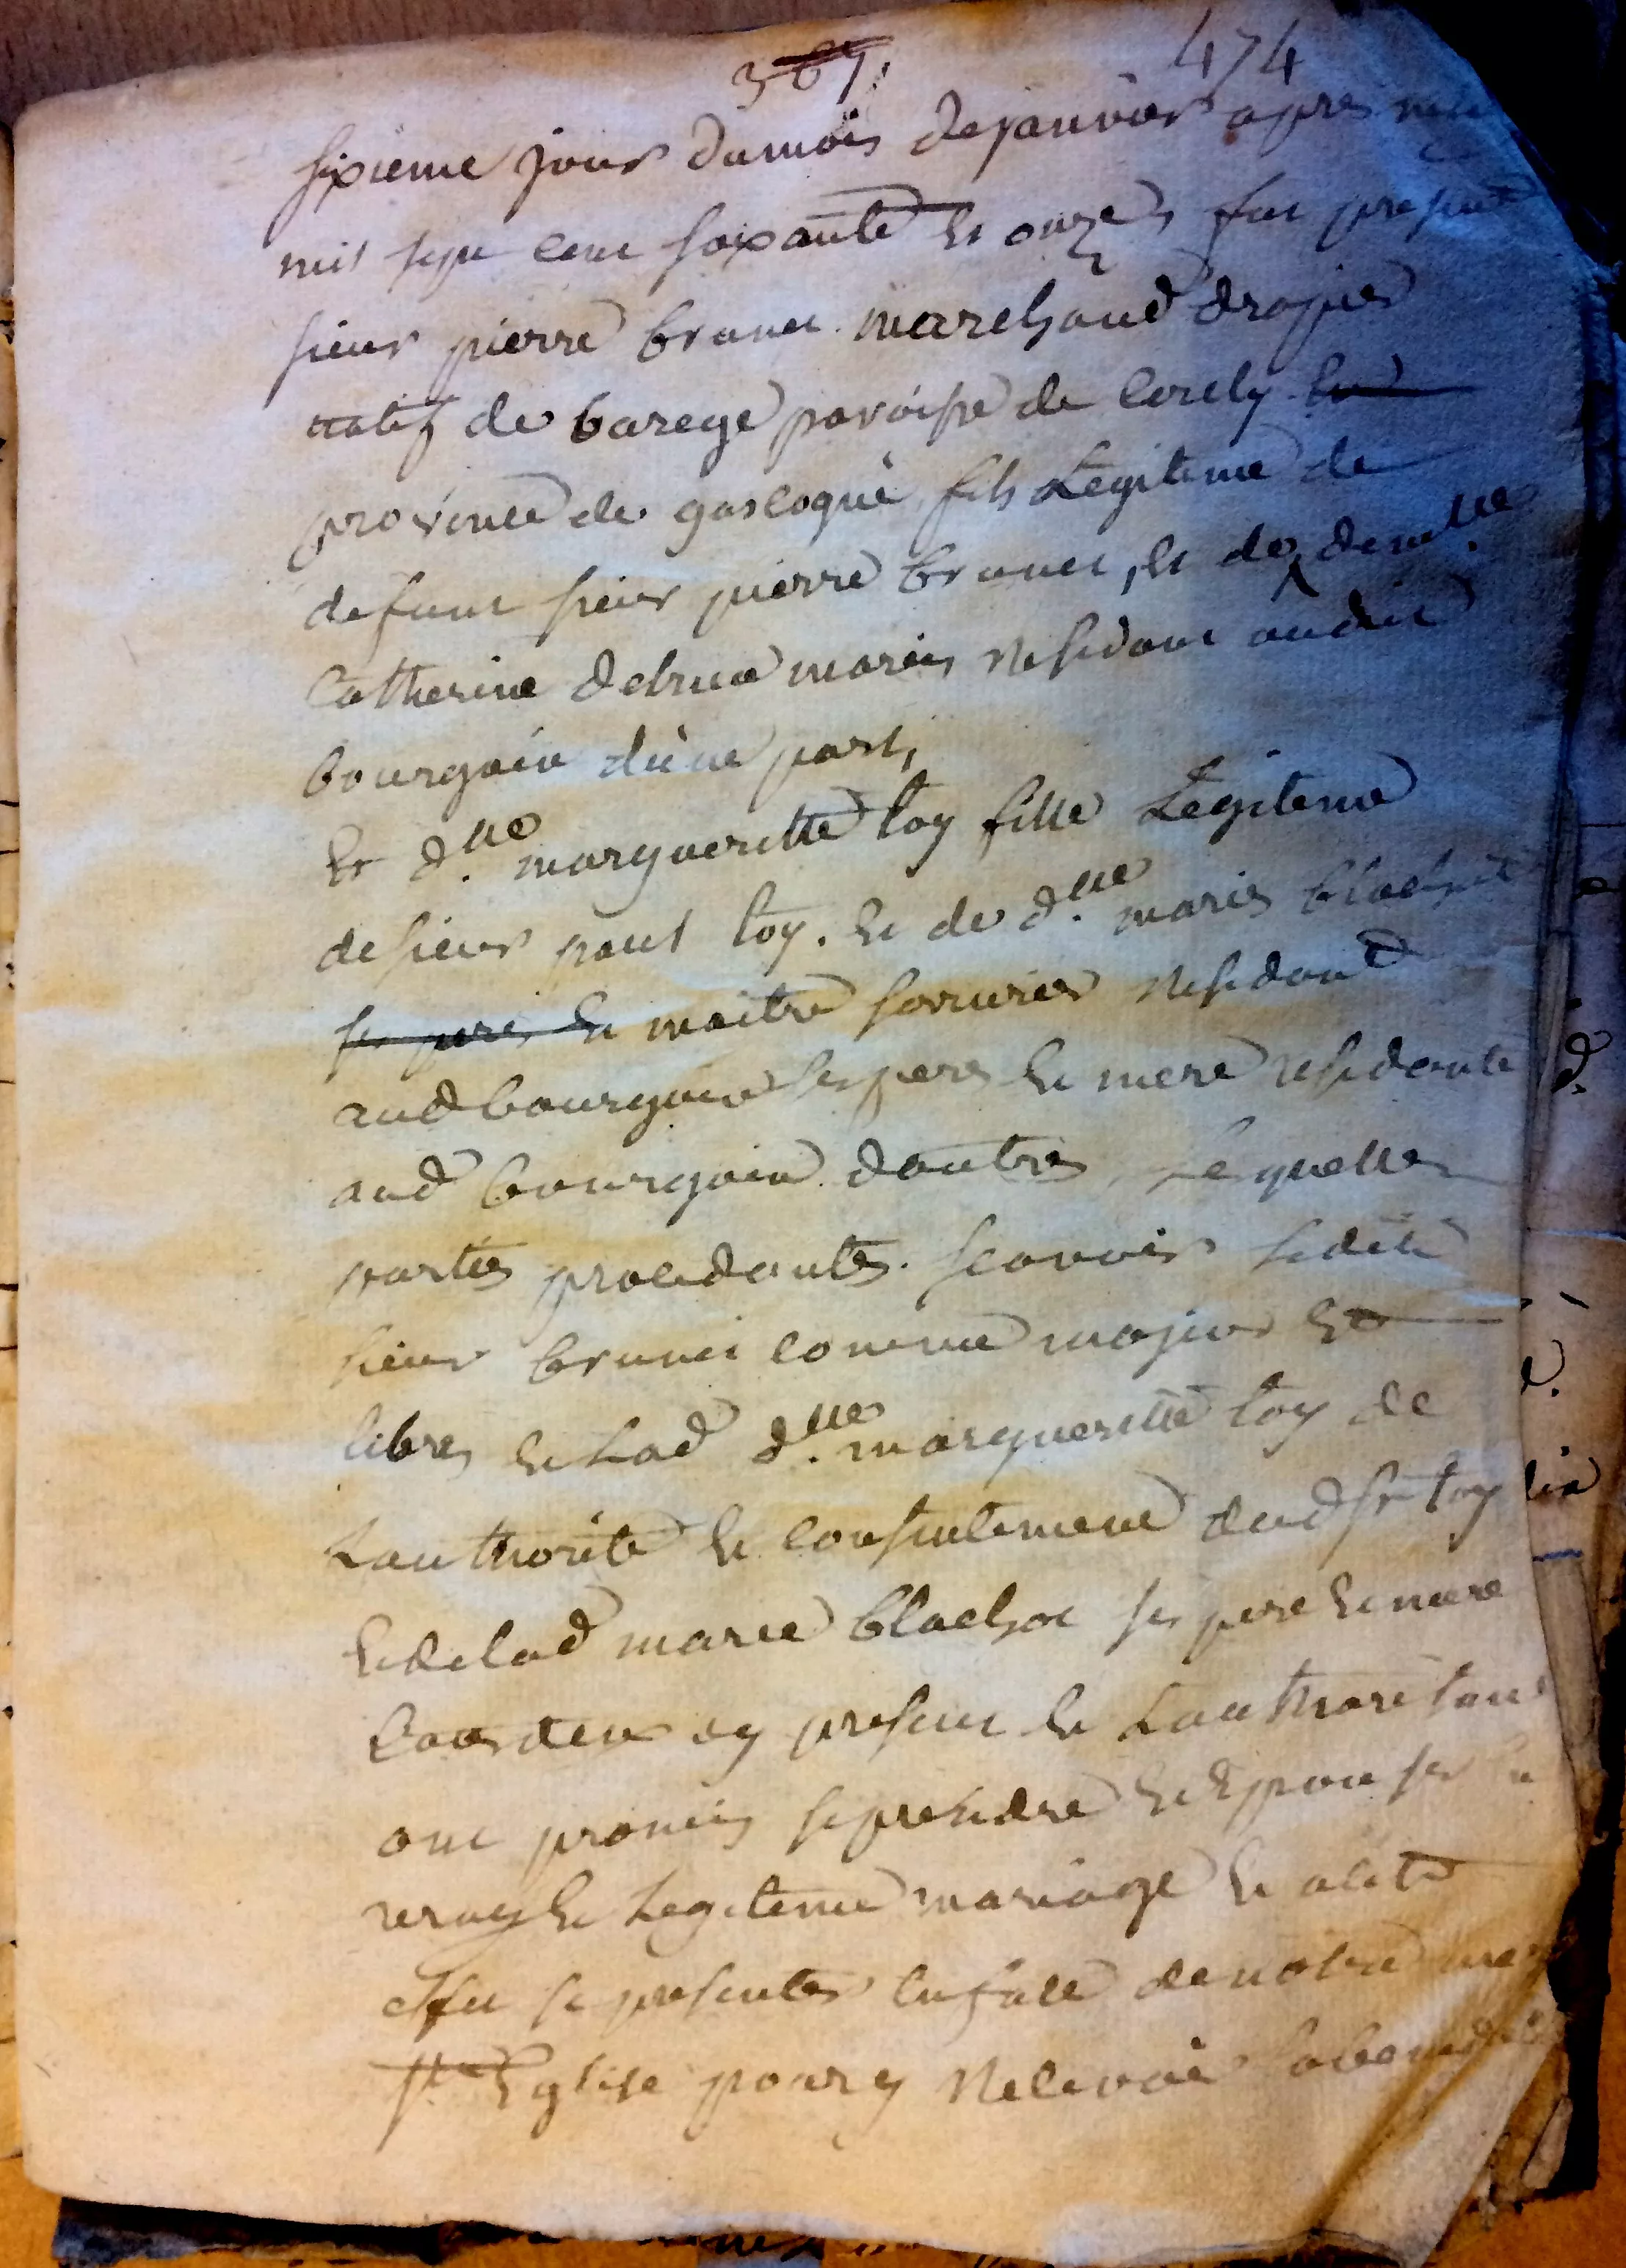 369 474
sixieme jour du mois de janvier apres midy
mil sept cent soixante et onze, fut present
sieur pierre brunet marchand drapier
natif de barege paroisse de
province de gascogne fils Legitime de
defunt sieur pierre brunet, et de demlle
Catherine maries residant audit
bourgoin d'une part,
Et dlle. margueritte toy fille Legitime
de sieur paul toy. et de dlle. marie blachot
maitre serrurier residant
aud bourgoin ses pere et mere residante
aud bourgoin d'autre, Lesquelles
parties procedantes. scavoir ledit
sieur brunet comme majeur et
libre, et Lad dlle. margueritte toy de
Lauthorité et consentement dud sr toy
et de lad marie blachot ses pere et mere
tous deux cy present et Lauthorisant
ont promis se prendre et Epouser en
vray et Legitime mariage et a cet
effet se presenter en face de notre mere
ste Eglise pour y recevoir